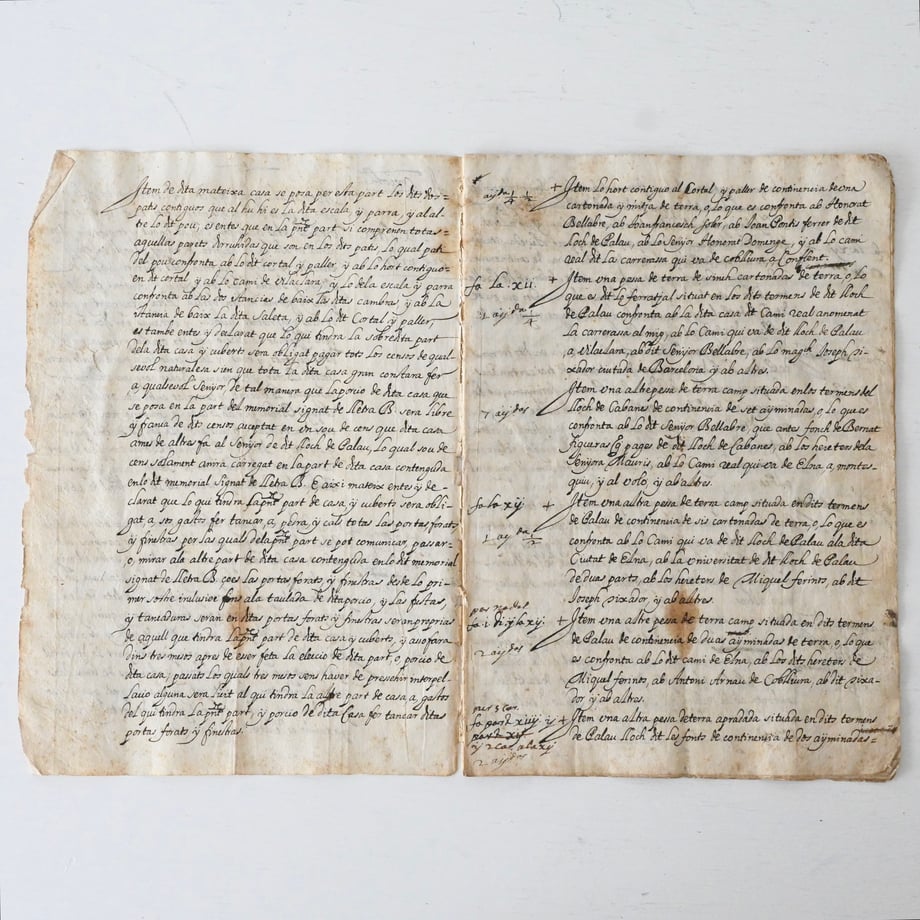 Item de dita mateixa casa se posa per esta part los dits dos
patis contiguos que al hu hi es la dita escala, ÿ parra, ÿ al al=
tre lo dit pou, es entes que en la pñt part si comprenen totas
aquellas parets derruhidas que son en los dits patis lo qual pati
del pou confronta ab lo dit cortal ÿ paller, ÿ ab lo hort contiguo
en dit cortal, ÿ ab lo Cami de Vilaclara, ÿ lo de la escala ÿ parra
confronta ab las dos stancies de baix la dita cambra, ÿ ab la
stancia de baix la dita saleta, ÿ ab lo dit Cortal ÿ paller,
es també entes ÿ declarat que lo qui tindra la sobredita part
de la dita casa ÿ cuberts sera obligat pagar tots los censos de qual=
sevol naturalesa sien que tota la dita casa gran constara fer
a qualsevol Senÿor de tal manera que la porcio de dita casa que
se posa en la part del memorial signat de lletra B. sera libre
ÿ franca de dits censos exceptat en un sou de cens que dita casa
ames de altres fa al Senÿor de dit lloch de Palau, lo qual sou de
cens solament anira carregat en la part de dita casa contenguda
en lo dit memorial signat de lletra B. E aixi mateix entes ÿ de=
clarat que lo qui tindra la pñt part de casa, ÿ cuberts sera obli=
gat a ses gastos fer tancar, a, pedra, ÿ cals totas las portas forats
ÿ finestras per las quals de la pñt part se pot comunicar, passar=
o, mirar a la altre part de dita casa contenguda en lo dit memorial
signat de lletra B. ço es las portas forats, ÿ finestras desde lo pri=
mer sostre inclusive fins a la taulada de dita porcio, ÿ las fustas,
ÿ tancaduras seran en ditas portas forats ÿ finestras seran proprias
de aquell que tindra la pñt part de dita casa ÿ cuberts, ÿ aço fara
dins tres mesos apres de esser feta la eleccio de dita part, o, porcio de
dita casa, passats los quals tres mesos sens haver de precehir interpel=
lacio alguna sera licit al qui tindra la altre part de casa a, gastos
del qui tindra la pñt part, ÿ porcio de dita Casa fer tancar ditas
portas forats ÿ finestras.
+ Item lo hort contiguo al Cortal, ÿ paller de continencia de una
cartonada ÿ mitja de terra, o, lo que es confronta ab Honorat
Bellabre, ab Joan francesch, ab Joan Pontis ferrer de dit
lloch de Palau, ab lo Senÿor Honorat Domenge, ÿ ab lo cami
real dit la carrerassa qui va de Cobliura a Conflent.
fo. la. xii. + Item una pesa de terra de sinch cartonadas de terra, o, lo
que es dit lo ferratjal situat en los dits termens de dit lloch
de Palau confronta ab la dita casa dit Cami real anomenat
la Carrerassa al mig, ab lo Cami qui va de dit lloch de Palau
a, Vilaclara, ab dit Senÿor Bellabre, ab lo magch Joseph Di=
xador ciutada de Barcelona ÿ ab altres.
Item una altre pesa de terra camp situada en los termens del
lloch de Cabanes de continencia de set aÿminadas, o, lo que es
confronta ab lo dit Senÿor Bellabre, que antes fonch de Bernat
figueras pages de dit lloch de Cabanes, ab los hereters de la
Senÿora Mauris, ab lo Cami real qui va de Elna, a, montes=
quiu, ÿ al volo, ÿ ab altres.
fo. la xij + Item una altra pesa de terra camp situada en dits termens
de Palau de continencia de sis cartonadas de terra, o, lo que es
confronta ab lo Cami qui va de dit lloch de Palau a la dita
Ciutat de Elna, ab la Universitat de dit lloch de Palau
de duas parts, ab los hereters de Miquel ferinos, ab dit
Joseph Dixador, ÿ ab altres.
+ Item una altre pesa de terra camp situada en dits termens
de Palau de continencia de duas aÿminadas de terra, o, lo que
2 aÿdas
es confronta ab lo dit cami de Elna, ab los dits hereters de
Miquel ferinos, ab Antoni Arnau de Cobliura, ab dit Dixa=
dor ÿ ab altres.
+ Item una altra pesa de terra apradada situada en dits termens
de Palau lloch dit les fonts de continencia de dos aÿminadas=